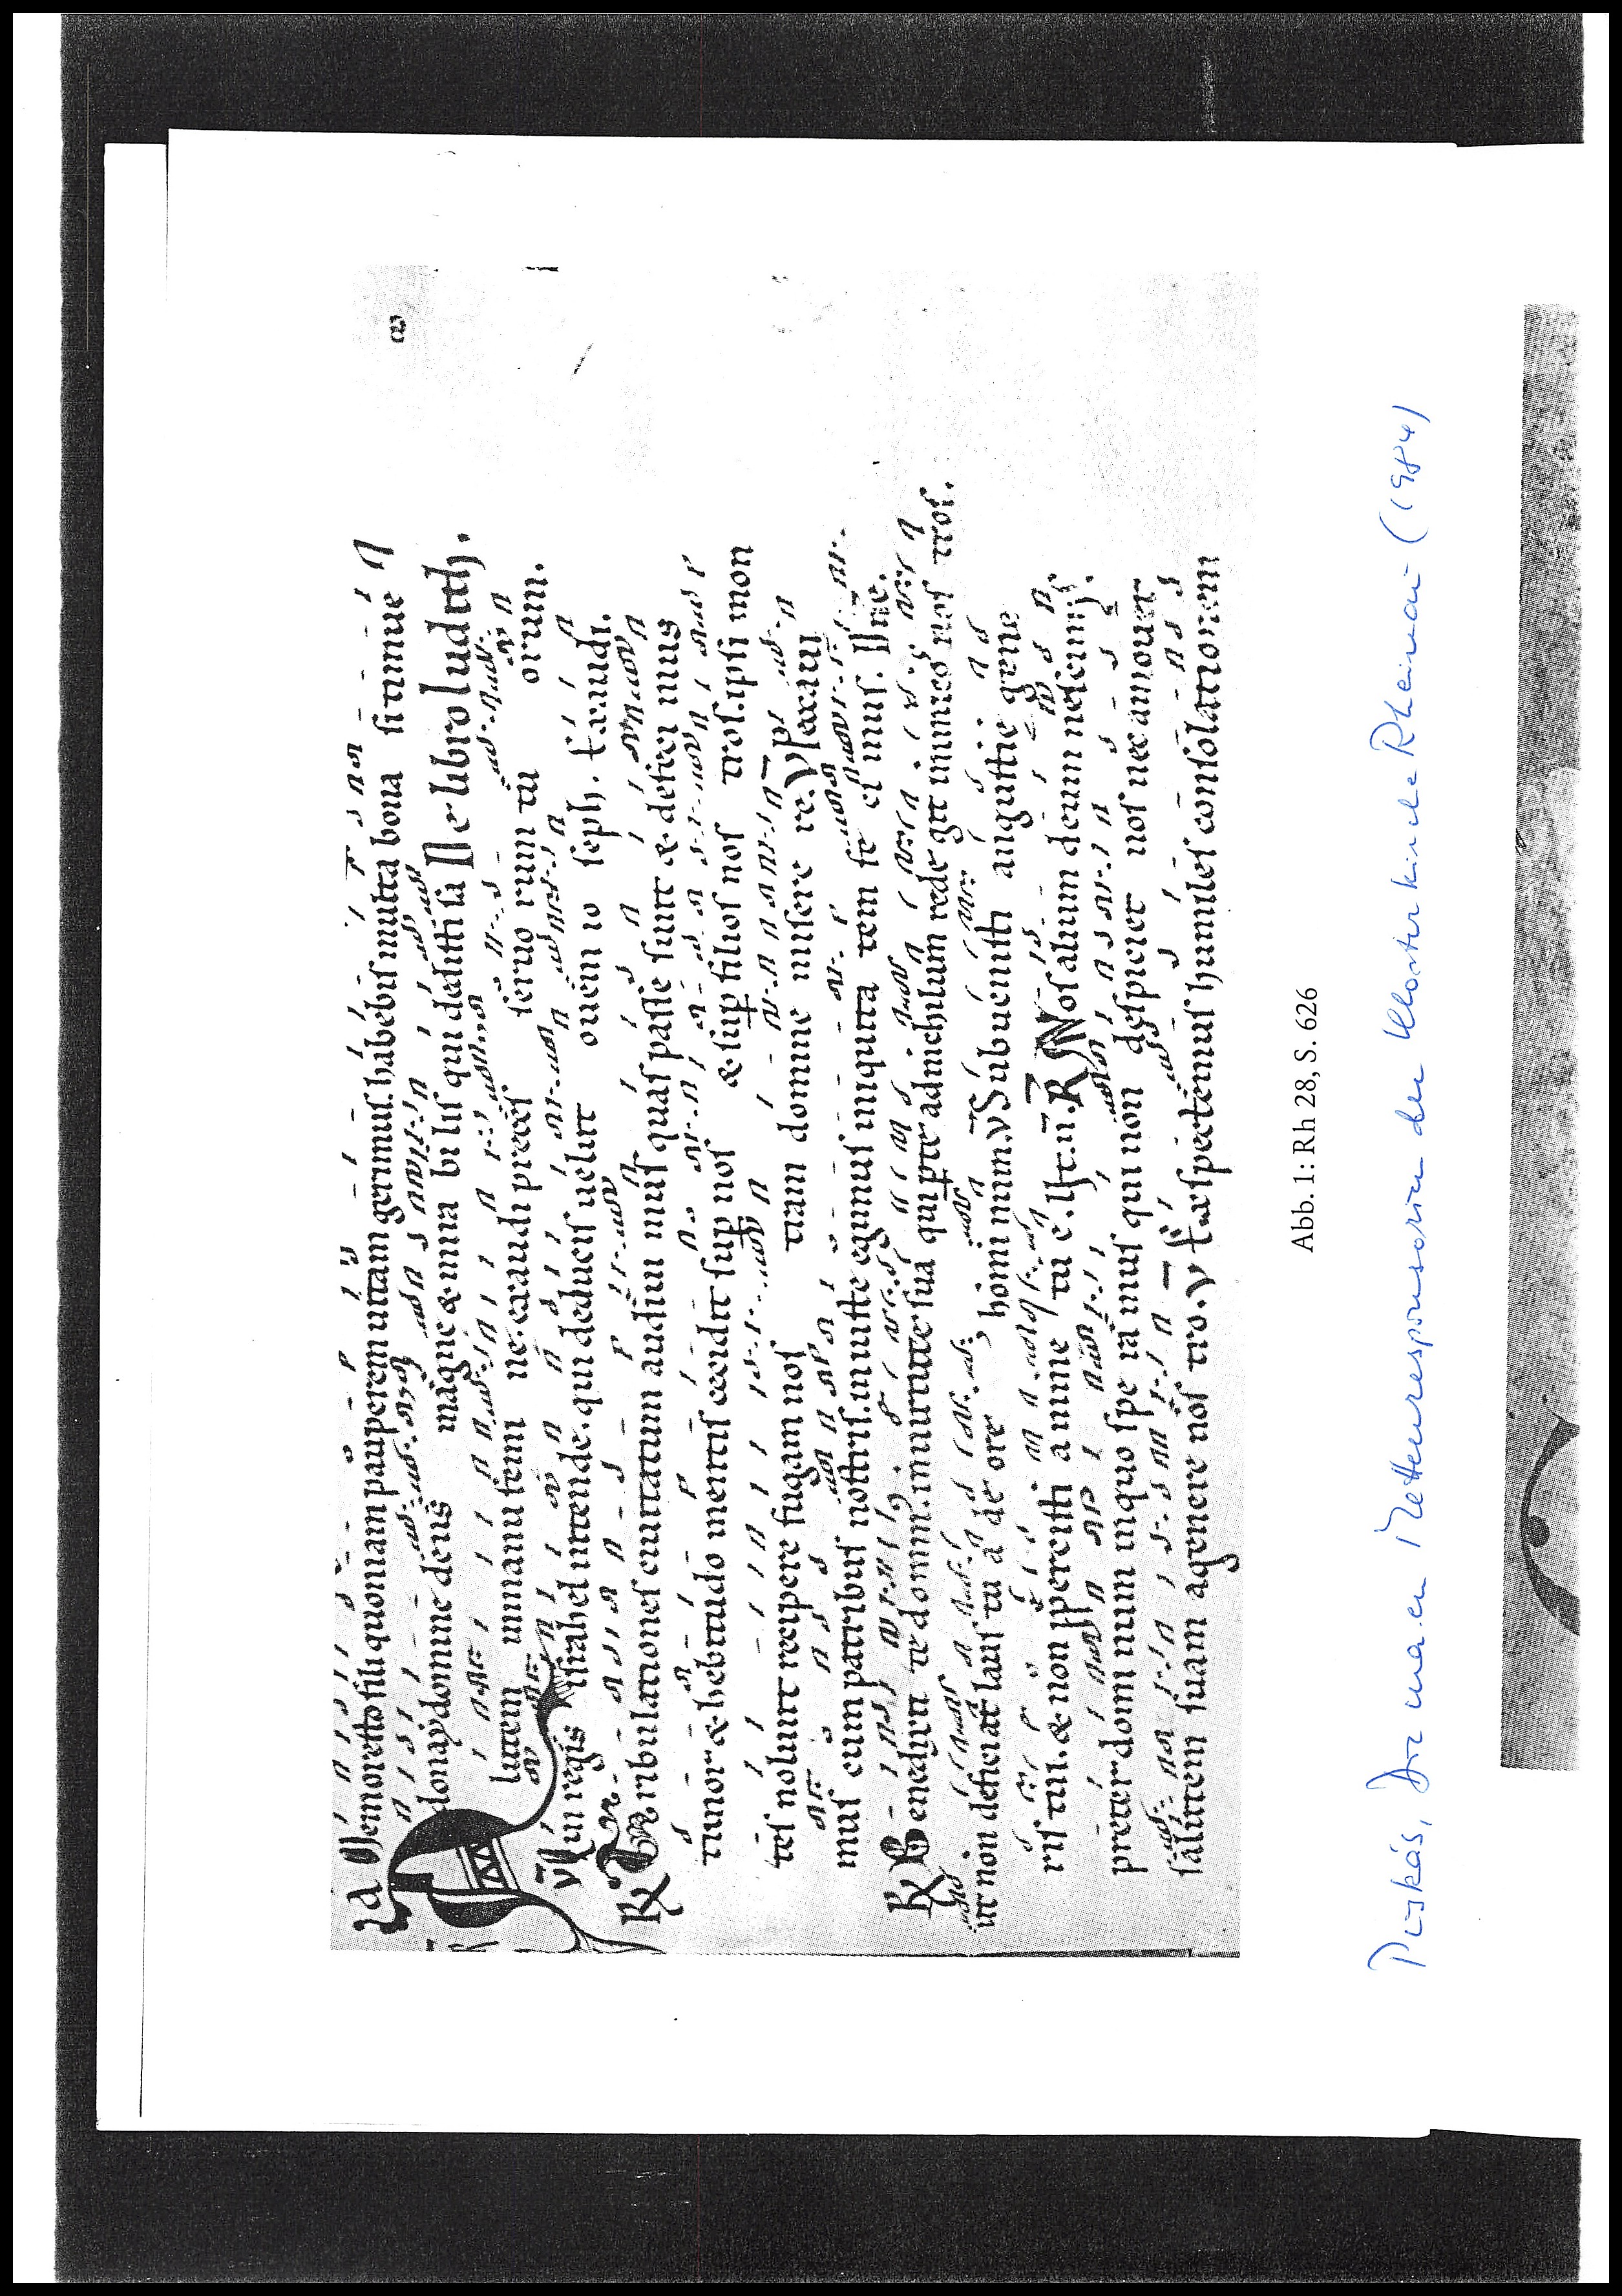 la Memor esto fili quoniam pauperem uitam gerimus. habebis multa bona si timue
donay domine deus magne & mira bilis qui dedisti sa De libro Iudith.
lutem in manu femi ne. exaudi preces seruo rum tu orum.
V̄ Qui regis israhel intende. qui deducis uelut ouem io seph. Exaudi.
R Tribulationes ciuitatum audiui mus quas passe sunt & defeci mus
timor & hebitudo mentis cecidit sup nos & sup filios nos tros. ipsi mon
tes nolunt recipere fugam nos tram domine misere re. V Peccaui
mus cum patribus nostris. iniuste egimus iniquita tem fe ci mus. Dne.
R Benedixit te domin. in uirtute sua qui p te ad nichilum rede git inimicos nos tros.
ut non deficiat laus tu a de ore homi num. V̄ Subuenisti angustie gene
ris tui. & non pperciisti anime tu e. R̄ Nos alium deum nescimus.
preter domi num in quo spe ra mus qui non despiciet nos nec amouet
salutem suam a genere nos tro. V̄ Exspectemus humiles consolationem
Abb. 1: Rh 28, S. 626
Puskás, Die Mettenresponsorien der Klosterkirche Rheinau (1984)